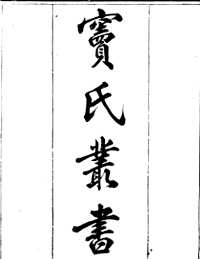 竇氏叢書